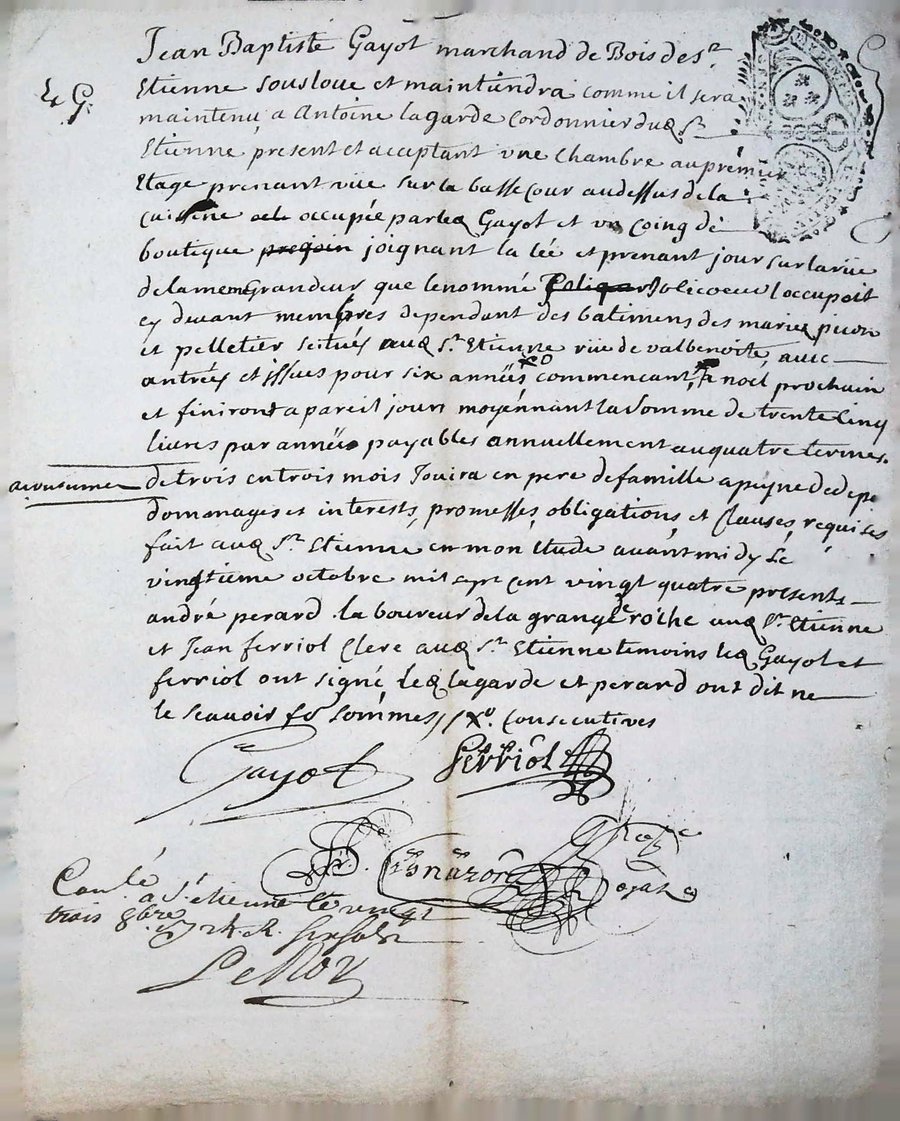 Jean Baptiste Gayot marchand de Bois de St.
Etienne sousloue et maintiendra comme il sera
maintenu a Antoine lagarde Cordonnier dud St
Etienne, present et acceptant vne Chambre au premier
Etage prenant vüe sur la basse Cour audessus de la
Cuisine occupée par led Gayot et vn Coing de
boutique joignant la lée et prenant jour sur la rüe
de la meme Grandeur que le nommé Jolicoeur l occupoit
cy devant membres dependant des batimens des mariés picon
et pelletier scitués aud St. Etienne rüe de valbenoite, auec
antrées et issues pour six années xo commencant a noel prochain
et finiront a pareil jour moyennant la Somme de trente Cinq
liures par année payables annuellement au quatre termes
acoutumes
de trois en trois mois Jouira en pere de famille a peyne de depe
dommages et interests, promesses, obligations et Clauses, requises
fait aud St. Etienne en mon Etude avant midy Le
vingtieme octobre mil sept cent vingt quatre presents
andré perard laboureur de la grange roche aud St. Etienne
et Jean ferriol Clerc aud St. Etienne temoins led Gayot et
ferriol ont signé led lagarde et perard ont dit ne
le scauoir
xo. Consecutives
Gayot ferriol
Conlé
a St. etienne le vingt
trois 8bre
LeRoy